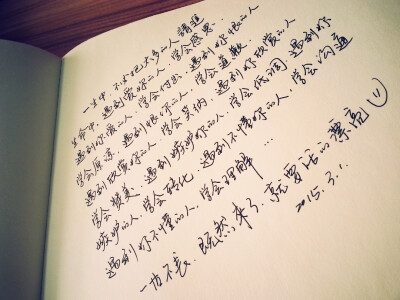 一生中，不要把太多的人请进
生命中，遇到爱你的人，学会感恩…
遇到你爱的人，学会付出，遇到你恨的人
学会原谅，遇到恨你的人，学会道歉
遇到欣赏你的人，学会笑纳，遇到你欣赏的人
学会赞美，遇到嫉妒你的人，学会低调，遇到你
嫉妒的人，学会转化，遇到不懂你的人，学会沟通
遇到你不懂的人，学会理解…
既然来了，就要活的漂亮
2015.3.1.